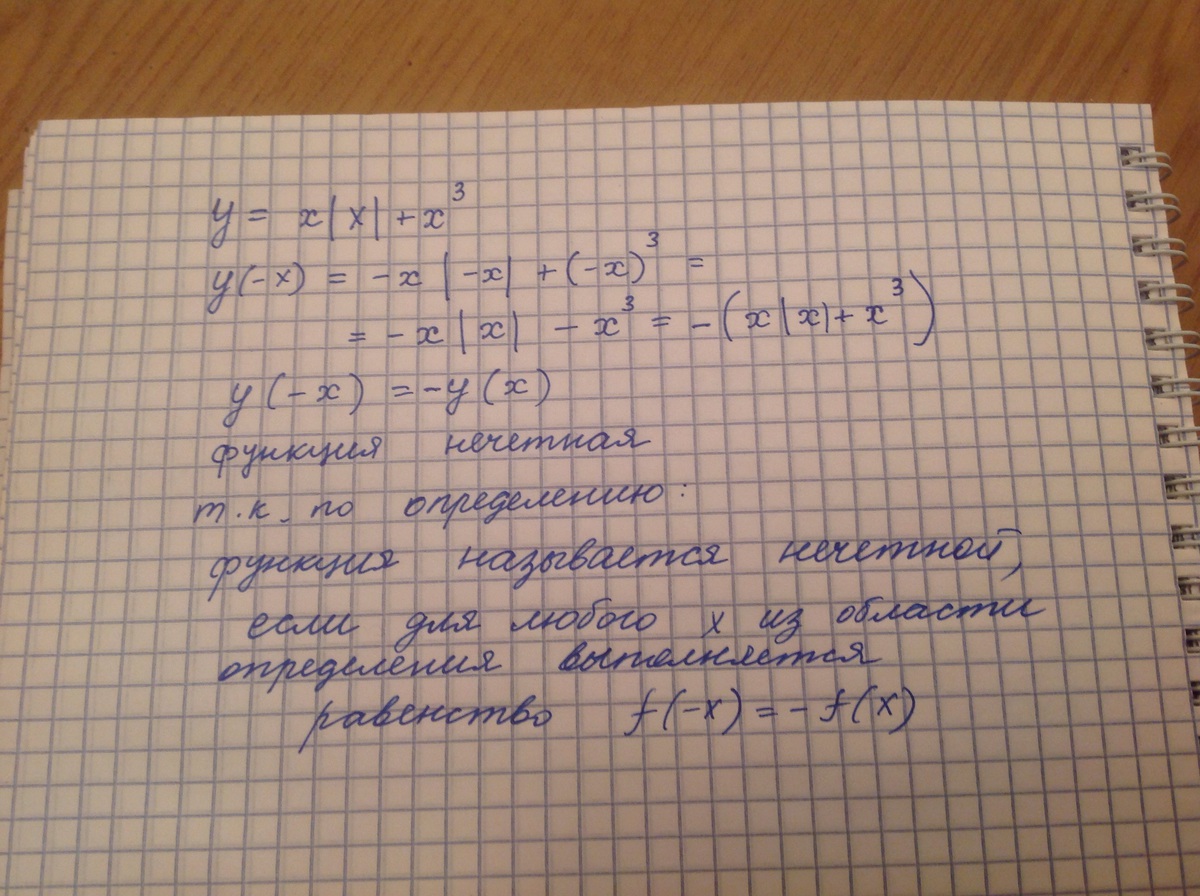 y = x|x| + x³
y(-x) = -x |-x| + (-x)³ =
= -x |x| - x³ = -(x|x| + x³)
y(-x) = -y(x)
функция нечетная
т.к. по определению:
функция называется нечетной,
если для любого x из области
определения выполняется
равенство f(-x) = -f(x)